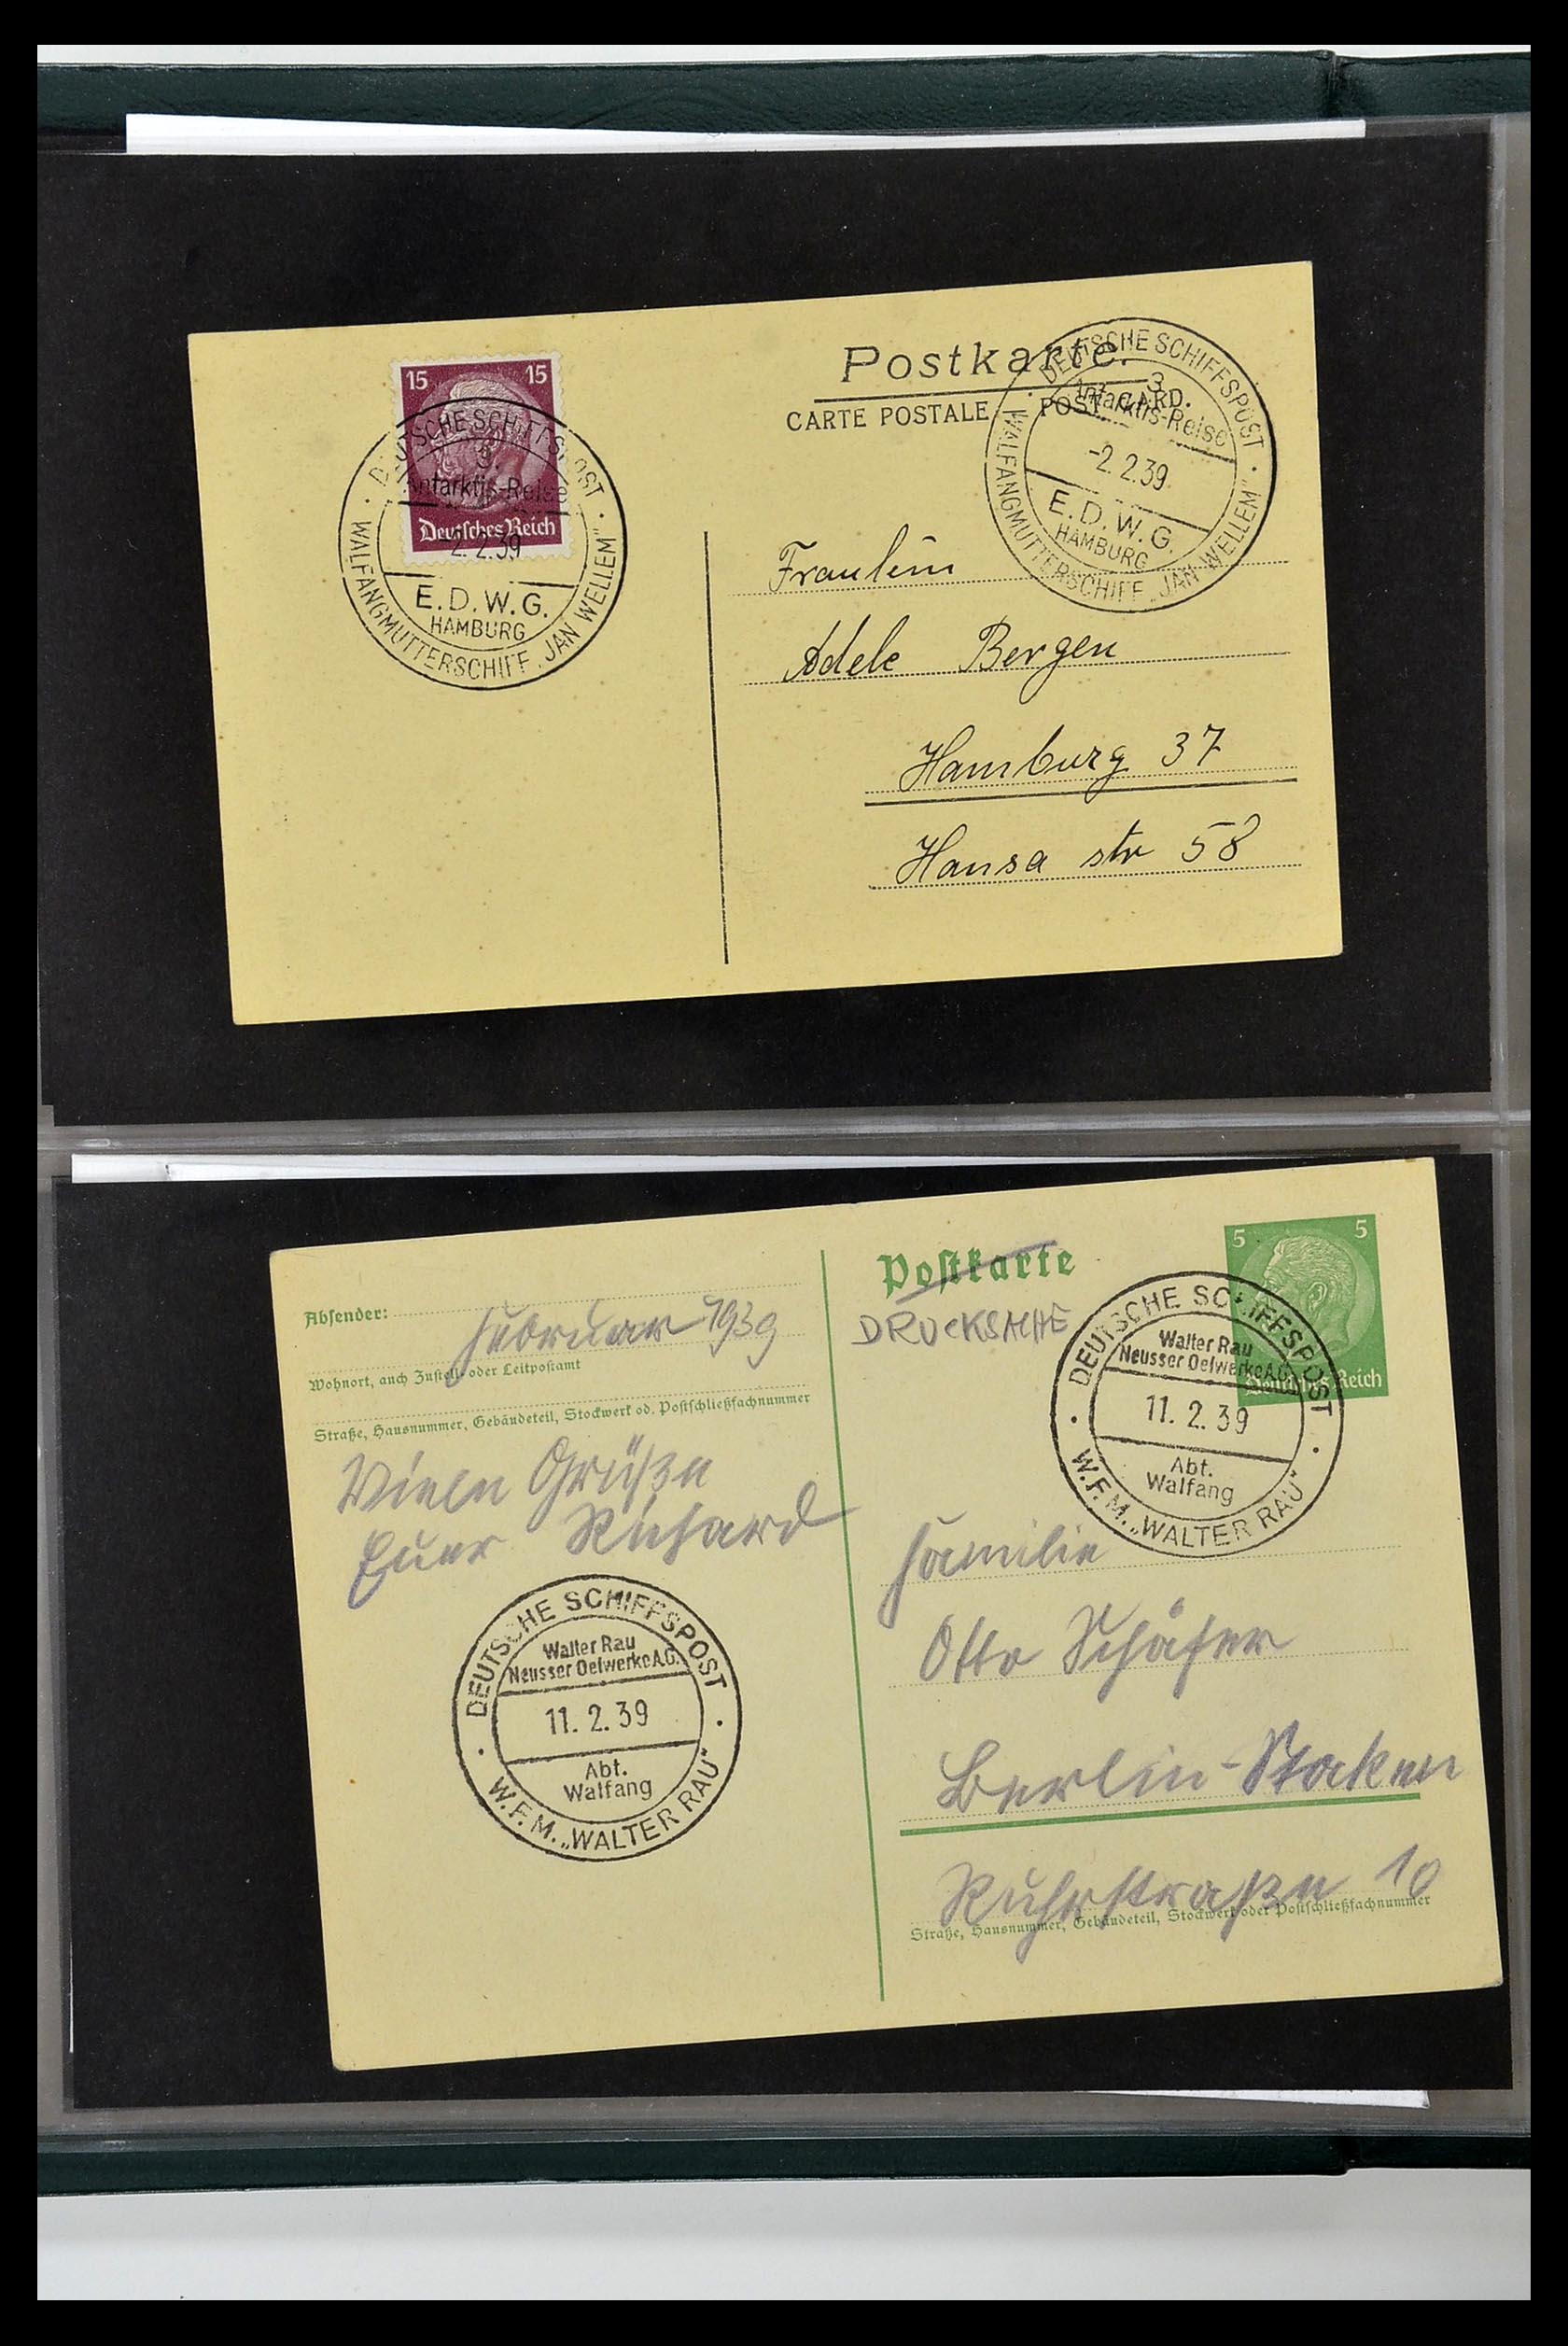 15 15
Deutsches Reich
DEUTSCHE SCHIFFSPOST
3.
Antarktis-Reise
-2. 2. 39
E. D. W. G.
HAMBURG
WALFANGMUTTERSCHIFF „JAN WELLEM"
Postkarte.
CARTE POSTALE POST CARD.
DEUTSCHE SCHIFFSPOST
3.
Antarktis-Reise
-2. 2. 39
E. D. W. G.
HAMBURG
WALFANGMUTTERSCHIFF „JAN WELLEM"
Fraulein
Adele Bergen
Hamburg 37
Hansa str 58
Absender:
Februar 1939
Wohnort, auch Zustell- oder Leitpostamt
Straße, Hausnummer, Gebäudeteil, Stockwerk od. Postschließfachnummer
Vielen Grüße
Euer Richard
DEUTSCHE SCHIFFSPOST
Walter Rau
Neusser Oelwerke A.G.
11. 2. 39
Abt.
Walfang
W.F.M. „WALTER RAU"
Postkarte
DRUCKSACHE
5 5
Deutsches Reich
DEUTSCHE SCHIFFSPOST
Walter Rau
Neusser Oelwerke A.G.
11. 2. 39
Abt.
Walfang
W.F.M. „WALTER RAU"
Familie
Otto Schäfer
Berlin-Staaken
Ruhrstraße 10
Straße, Hausnummer, Gebäudeteil, Stockwerk oder Postschließfachnummer